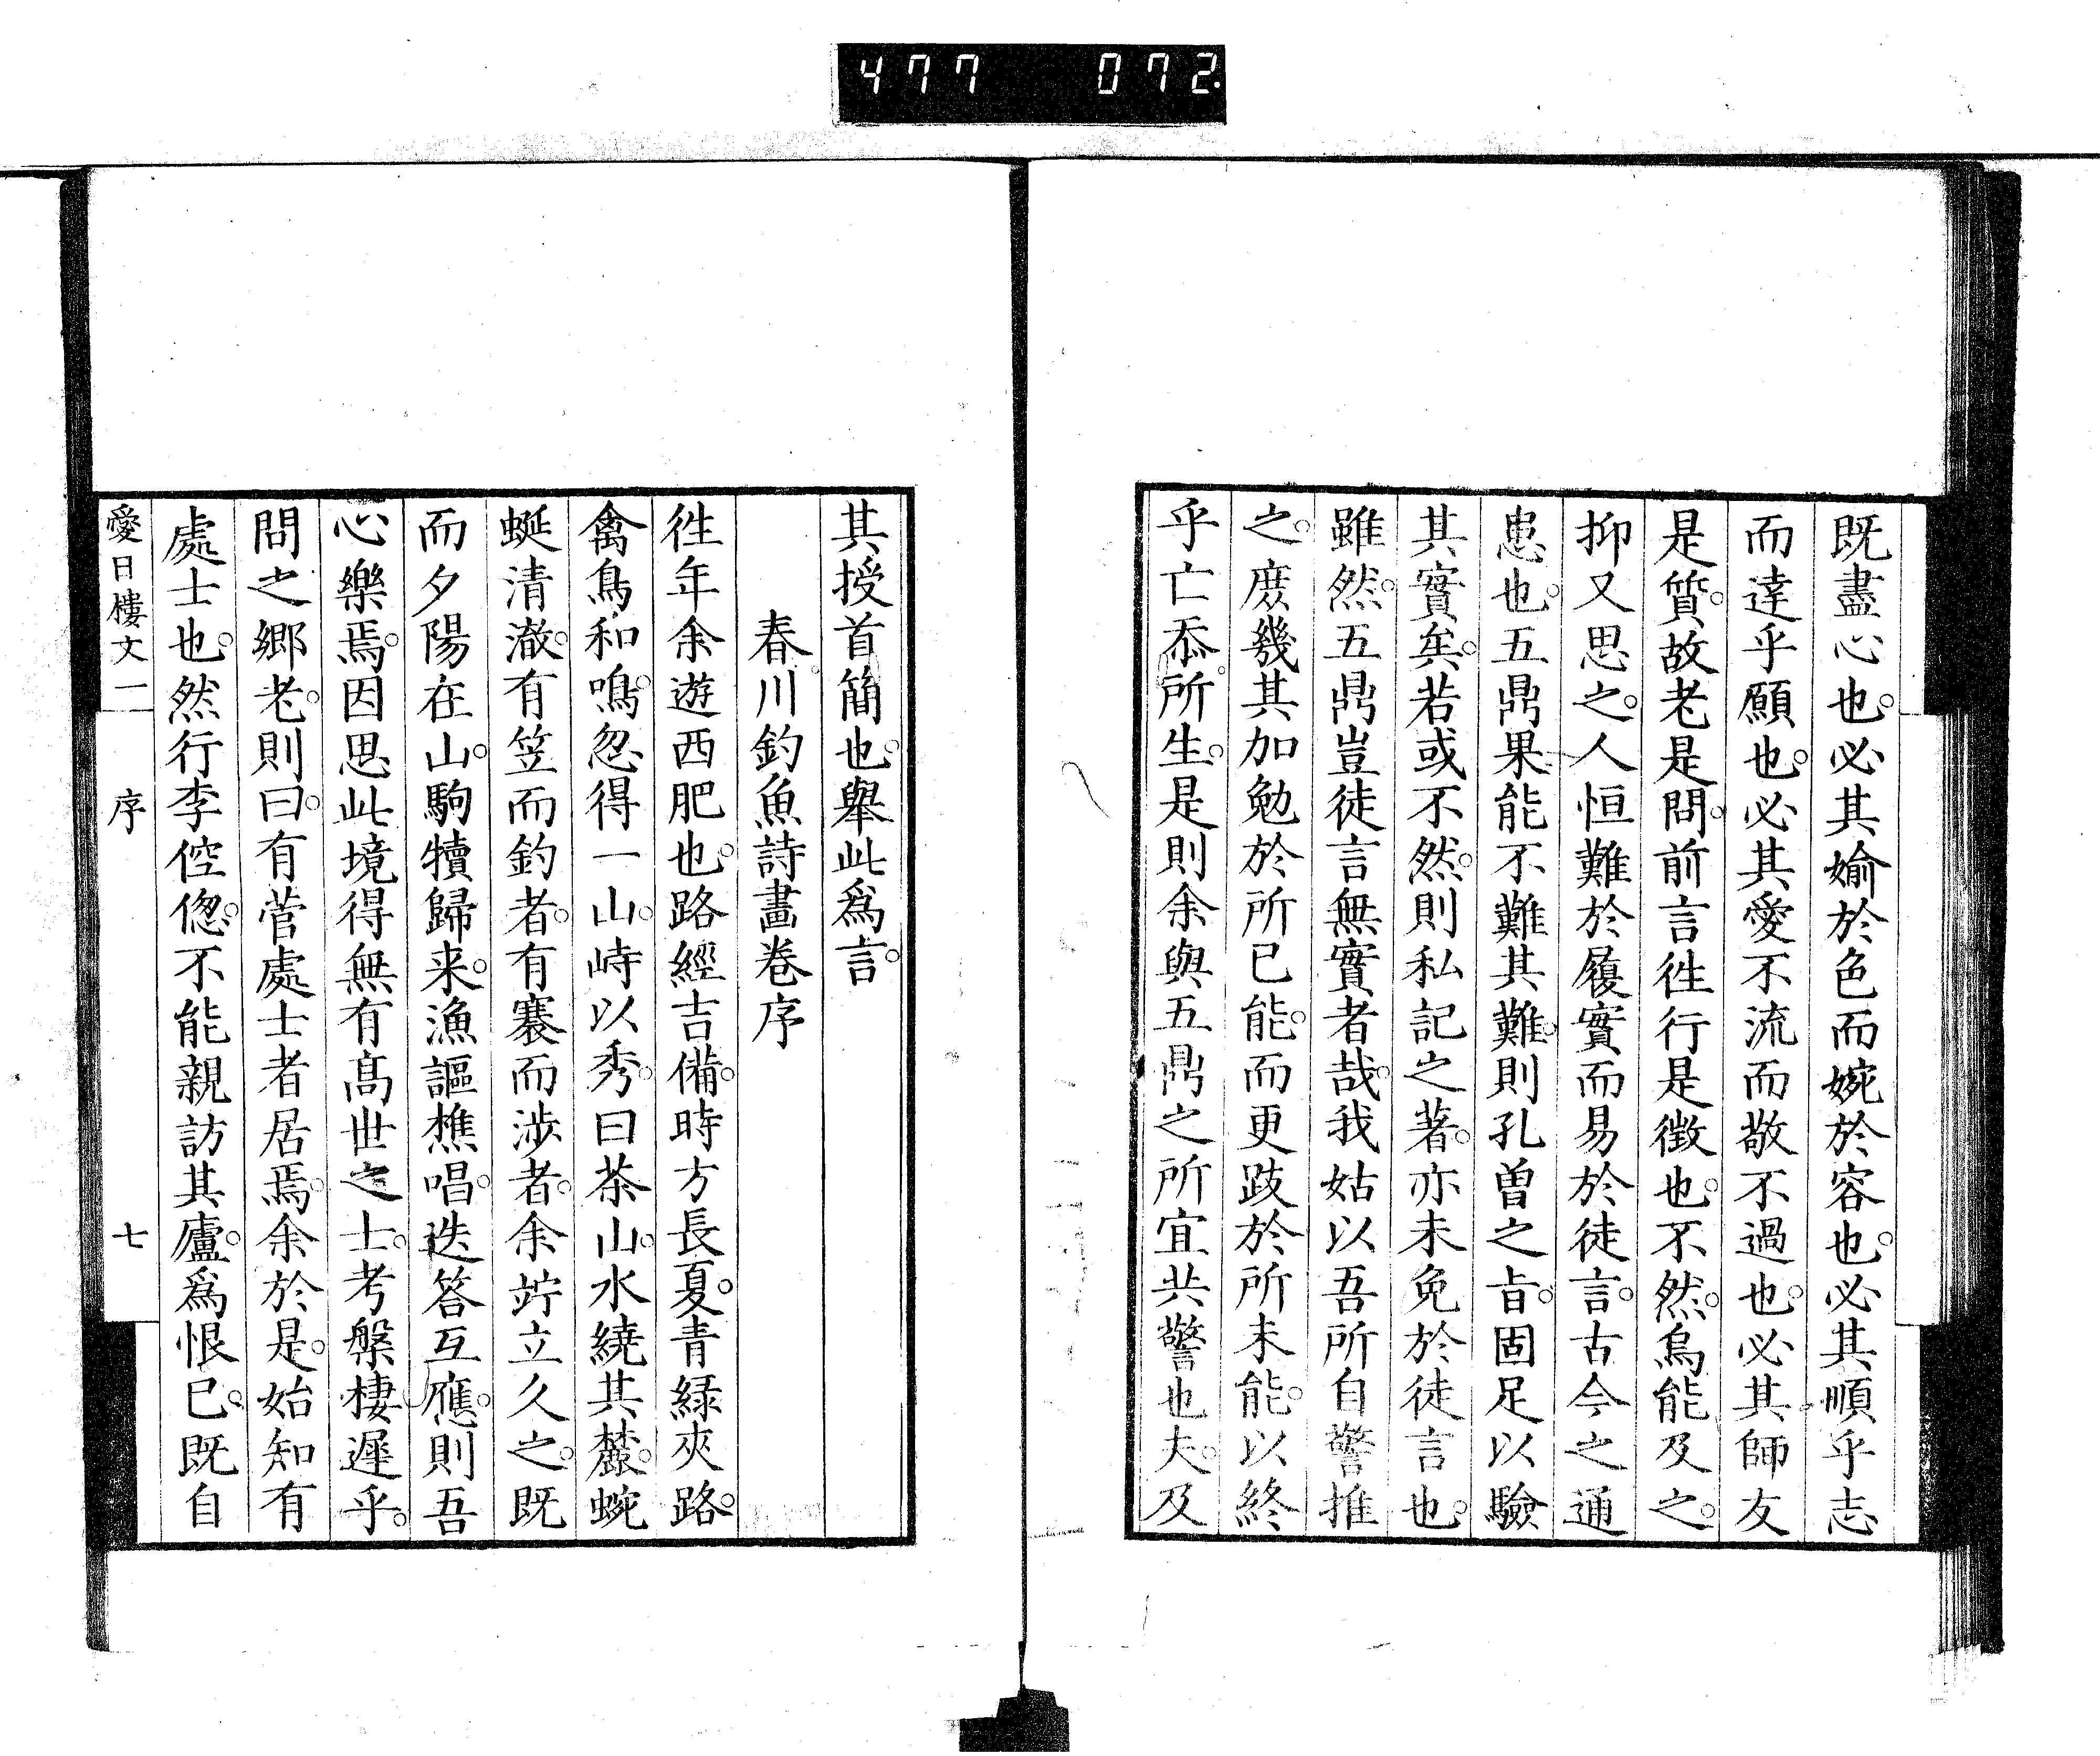 477 072.
既盡心也。必其婾於色而婉於容也。必其順乎志
而達乎願也。必其愛不流而敬不過也。必其師友
是質。故老是問。前言往行是徵也。不然。烏能及之。
抑又思之。人恒難於履實而易於徒言。古今之通
患也。五鼎果能不難其難。則孔曽之旨。固足以驗
其實矣。若或不然。則私記之著。亦未免於徒言也。
雖然。五鼎豈徒言無實者哉。我姑以吾所自警推
之。庻幾其加勉於所已能。而更跂於所未能。以終
乎亡忝所生。是則余與五鼎之所宜共警也夫。及
其授首簡也。舉此爲言。
春川釣魚詩畫卷序
徃年余遊西肥也。路經吉備。時方長夏。青緑夾路。
禽鳥和鳴。忽得一山。峙以秀。曰茶山。水繞其麓。蜿
蜒清澈。有笠而釣者。有褰而渉者。余竚立久之。既
而夕陽在山。駒犢歸来。漁謳樵唱。迭答互應。則吾
心樂焉。因思此境得無有髙世之士。考槃棲遲乎。
問之郷老。則曰。有菅處士者居焉。余於是。始知有
處士也。然行李倥偬。不能親訪其廬。爲恨已。既自
愛日樓文一 序 七